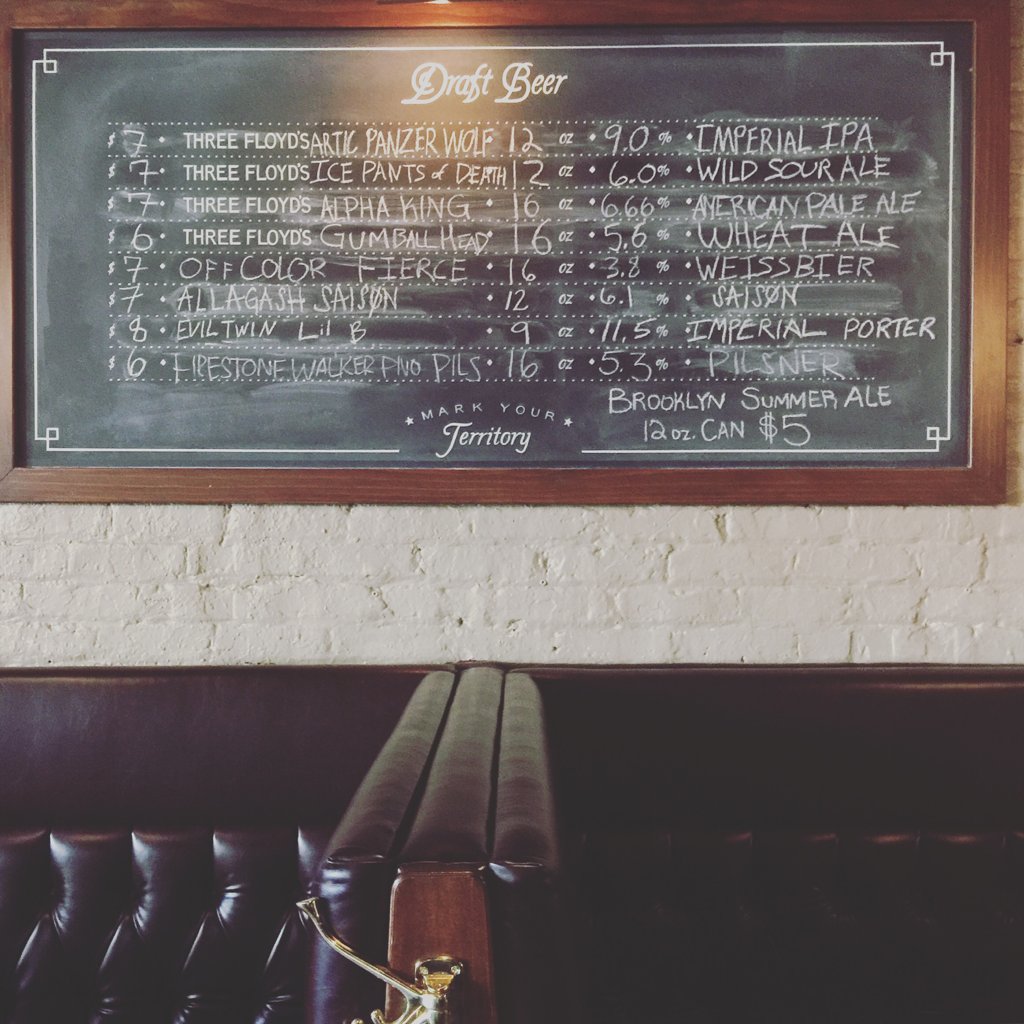 Draft Beer
$ 7 • THREE FLOYD'S ARTIC PANZER WOLF 12 oz • 9.0 % • IMPERIAL IPA
$ 7 • THREE FLOYD'S ICE PANTS of DEATH 12 oz • 6.0 % • WILD SOUR ALE
$ 7 • THREE FLOYD'S ALPHA KING • 16 oz • 6.66 % • AMERICAN PALE ALE
$ 6 • THREE FLOYD'S GUMBALL HEAD • 16 oz • 5.6 % • WHEAT ALE
$ 7 • OFF COLOR FIERCE • 16 oz • 3.8 % • WEISSBIER
$ 7 • ALLAGASH SAISØN • 12 oz • 6.1 % • SAISØN
$ 8 • EVIL TWIN Lil B • 9 oz • 11.5 % • IMPERIAL PORTER
$ 6 • FIRESTONE WALKER PIVO PILS • 16 oz • 5.3 % • PILSNER
BROOKLYN SUMMER ALE
12 oz. CAN $5
★ MARK YOUR ★
Territory